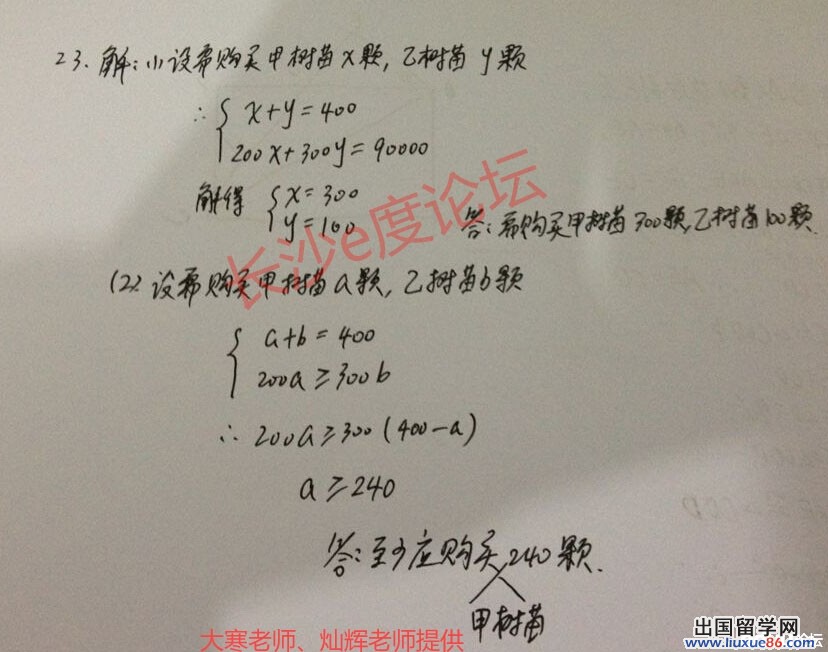 23. 解:(1)设需购买甲树苗x颗,乙树苗y颗
∴ { x+y=400
200x+300y=90000
解得 { x=300
y=100
答:需购买甲树苗300颗,乙树苗100颗.
(2) 设需购买甲树苗a颗,乙树苗b颗
{ a+b=400
200a≥300b
∴ 200a≥300(400-a)
a≥240
答:至少应购买240颗.
甲树苗
长沙e度论坛
大寒老师、灿辉老师提供
出国留学网
www.liuxue86.com